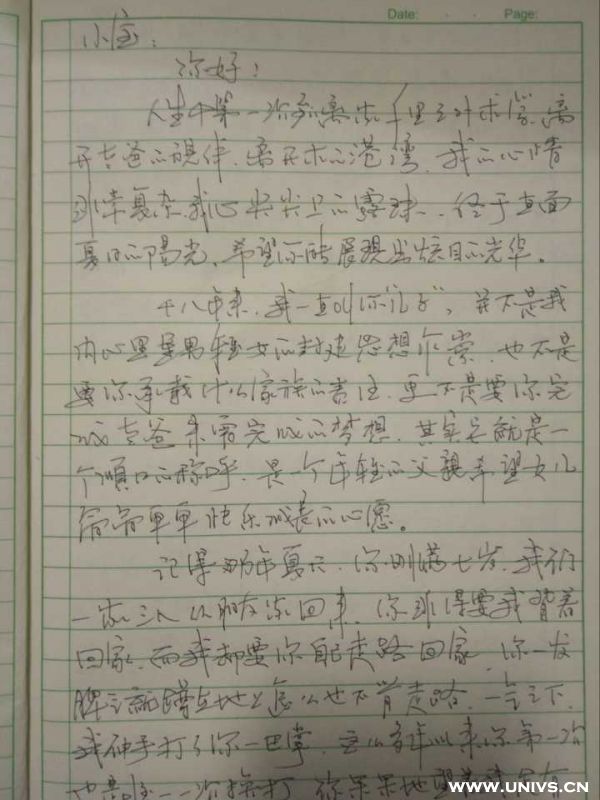 Date: Page:
小宝:
你好!
人生中第一次离家千里之外求学,离
开老爸的视线,离开家的港湾,我的心情
非常复杂,我心尖尖上的露珠,终于直面
夏日的阳光,希望你能展现出炫目的光华。
十八年来,我一直叫你"儿子",并不是我
内心里重男轻女的封建思想作祟,也不是
要你承载什么家族的责任,更不是要你完
成老爸未曾完成的梦想,其实它就是一
个顺口的称呼,是一个年轻的父亲希望女儿
简简单单快乐成长的心愿。
记得那年夏天,你刚满七岁,我们
一家三人从朋友家回来,你非得要我背着
回家,而我却要你自己走路回家,你一发
脾气就蹲在地上怎么也不肯走路,一气之下,
我伸手打了你一巴掌,这么多年以来你第一次
也是唯一一次挨打,你呆呆地望着
WWW.UNIVS.CN